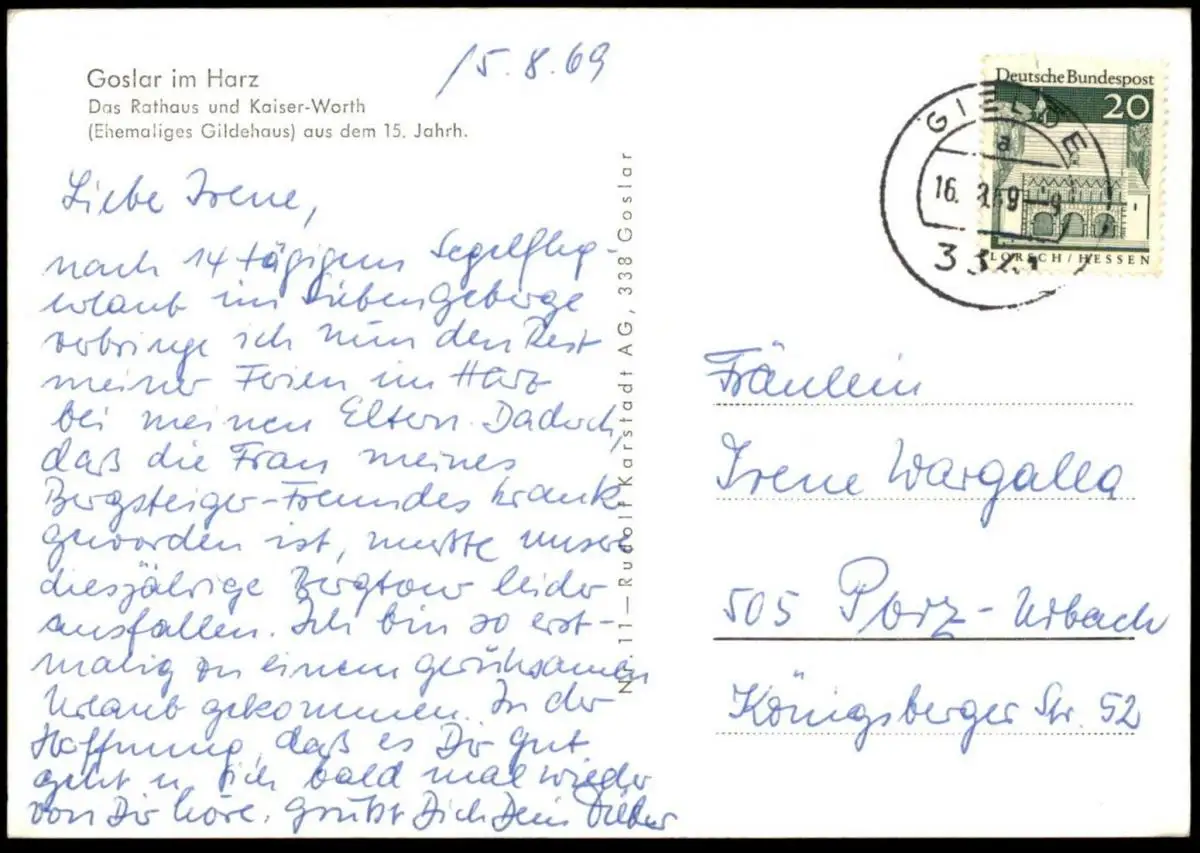 Goslar im Harz
Das Rathaus und Kaiser-Worth
(Ehemaliges Gildehaus) aus dem 15. Jahrh.
15.8.69
Liebe Irene,
nach 14 tägigem Segelflug-
urlaub im Siebengebirge
verbringe ich nun den Rest
meiner Ferien im Harz
bei meinen Eltern. Dadurch,
daß die Frau meines
Bergsteiger-Freundes krank
geworden ist, mußte unsere
diesjährige Bergtour leider
ausfallen. Ich bin so erst-
malig zu einem geruhsamen
Urlaub gekommen. In der
Hoffnung, daß es Dir gut
geht u. ich bald mal wieder
von Dir höre, grüßt Dich Dein
Nr. 11 — Rudolf Karstadt AG, 338 Goslar
Deutsche Bundespost
20
LORSCH/HESSEN
GIELDE
a
16. 69-9
Fräulein
Irene Wargalla
505 Porz-Urbach
Königsberger Str. 52